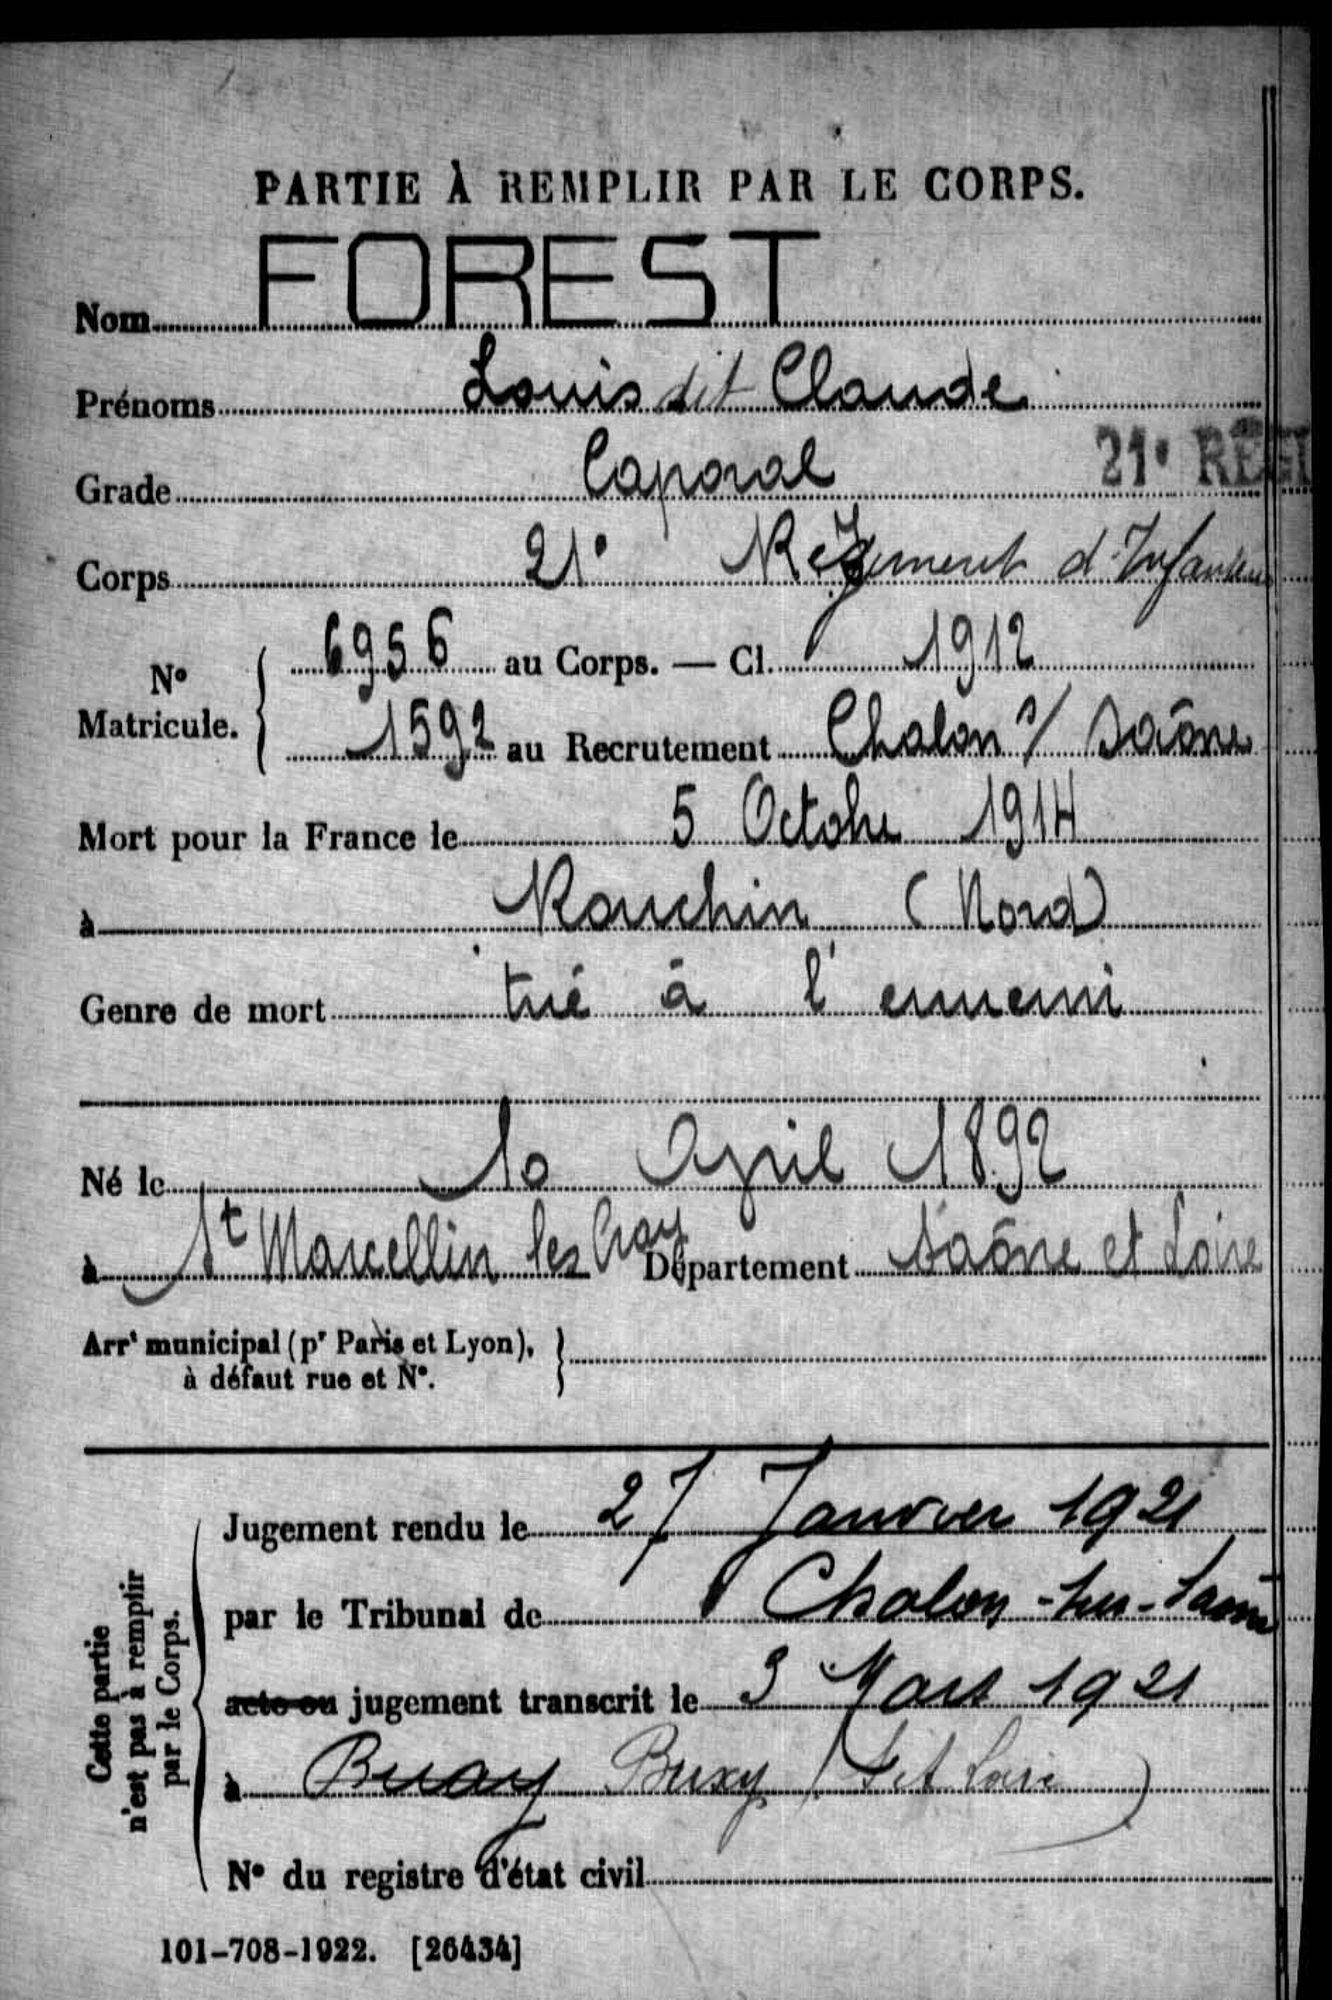 PARTIE À REMPLIR PAR LE CORPS.
Nom FOREST
Prénoms Louis dit Claude
Grade Caporal
21e RÉGI
Corps 21e Régiment d'Infanterie
No Matricule. { 6956 au Corps. — Cl. 1912
1592 au Recrutement Chalon s/ Saône
Mort pour la France le 5 Octobre 1914
à Ronchin (Nord)
Genre de mort tué à l'ennemi
Né le 10 Avril 1892
à St Marcellin les Cray Département Saône et Loire
Arrt municipal (pr Paris et Lyon), }
à défaut rue et N°.
Cette partie
n'est pas à remplir
par le Corps.
Jugement rendu le 27 Janvier 1921
par le Tribunal de Chalon-sur-Saône
acte ou jugement transcrit le 3 Mars 1921
à Buxy (S et Loire)
N° du registre d'état civil
101-708-1922. [26434]